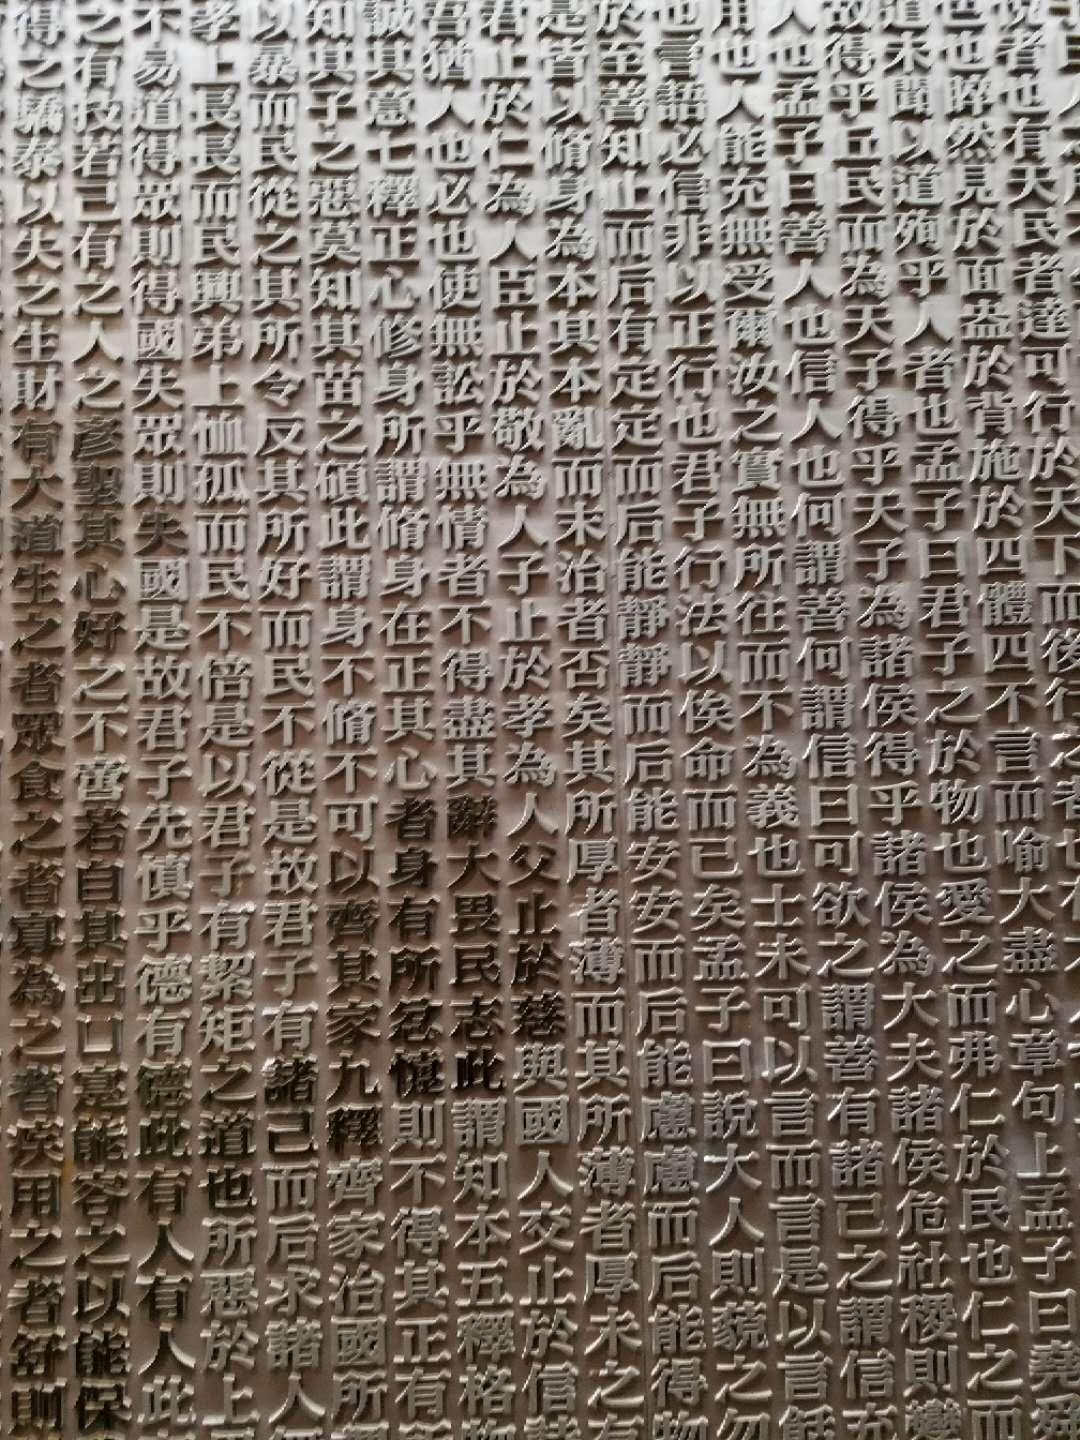 悅者也有天民者達可行於天下而後行之者也有
色也睟然見於面盎於背施於四體四不言而喻大盡心章句上孟子曰堯舜
道未聞以道殉乎人者也孟子曰君子之於物也愛之而弗仁於民也仁之而
故得乎丘民而為天子得乎天子為諸侯得乎諸侯為大夫諸侯危社稷則變
人也孟子曰善人也信人也何謂善何謂信曰可欲之謂善有諸己之謂信充
用也人能充無受爾汝之實無所往而不為義也士未可以言而言是以言餂
也言語必信非以正行也君子行法以俟命而已矣孟子曰說大人則藐之勿
於至善知止而后有定定而后能靜靜而后能安安而后能慮慮而后能得物
是皆以脩身為本其本亂而末治者否矣其所厚者薄而其所薄者厚未之有
君止於仁為人臣止於敬為人子止於孝為人父止於慈與國人交止於信詩
吾猶人也必也使無訟乎無情者不得盡其辭大畏民志此謂知本五釋格物
誠其意七釋正心修身所謂脩身在正其心者身有所忿懥則不得其正有所
知其子之惡莫知其苗之碩此謂身不脩不可以齊其家九釋齊家治國所謂
以暴而民從之其所令反其所好而民不從是故君子有諸己而后求諸人
孝上長長而民興弟上恤孤而民不倍是以君子有絜矩之道也所惡於上
不易道得眾則得國失眾則失國是故君子先慎乎德有德此有人有人此
之有技若己有之人之彥聖其心好之不啻若自其出口寔能容之以能保
得之驕泰以失之生財有大道生之者眾食之者寡為之者疾用之者舒則